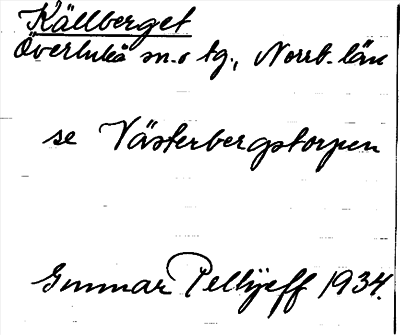 Källberget
Överluleå sn. o tg., Norrb. län
se Västerbergstorpen
Gunnar Pellijeff 1934.